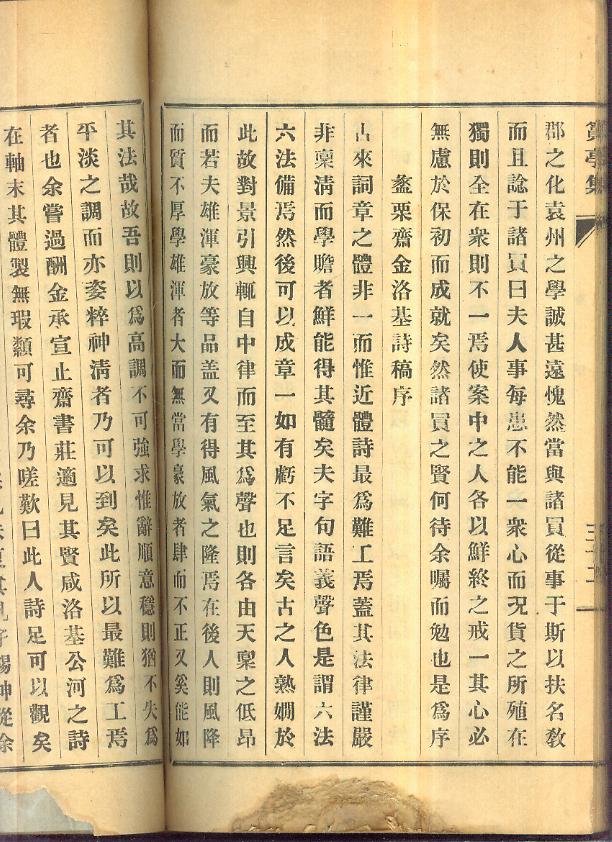 亭集
郡之化袁州之學誠甚遠愧然當與諸員從事于斯以扶名敎
而且諗于諸員曰夫人事每患不能一衆心而况貨之所殖在
獨則全在衆則不一焉使案中之人各以鮮終之戒一其心必
無慮於保初而成就矣然諸員之賢何待余囑而勉也是爲序
齋金洛基詩稿序
古來詞章之體非一而惟近體詩最爲難工焉蓋其法律謹嚴
非稟淸而學贍者鮮能得其髓矣夫字句語義聲色是謂六法
六法備焉然後可以成章一如有虧不足言矣古之人熟嫺於
此故對景引興輒自中律而至其爲聲也則各由天稟之低昂
而若夫雄渾豪放等品盖又有得風氣之隆焉在後人則風降
而質不厚學雄渾者大而無當學豪放者肆而不正又奚能如
其法哉故吾則以爲高調不可強求惟辭順意穩則猶不失爲
平淡之調而亦姿粹神淸者乃可以到矣此所以最難爲工焉
者也余嘗過酬金承宣止齋書莊適見其賢咸洛基公河之詩
在軸末其體製無瑕纇可尋余乃嗟歎曰此人詩足可以觀矣